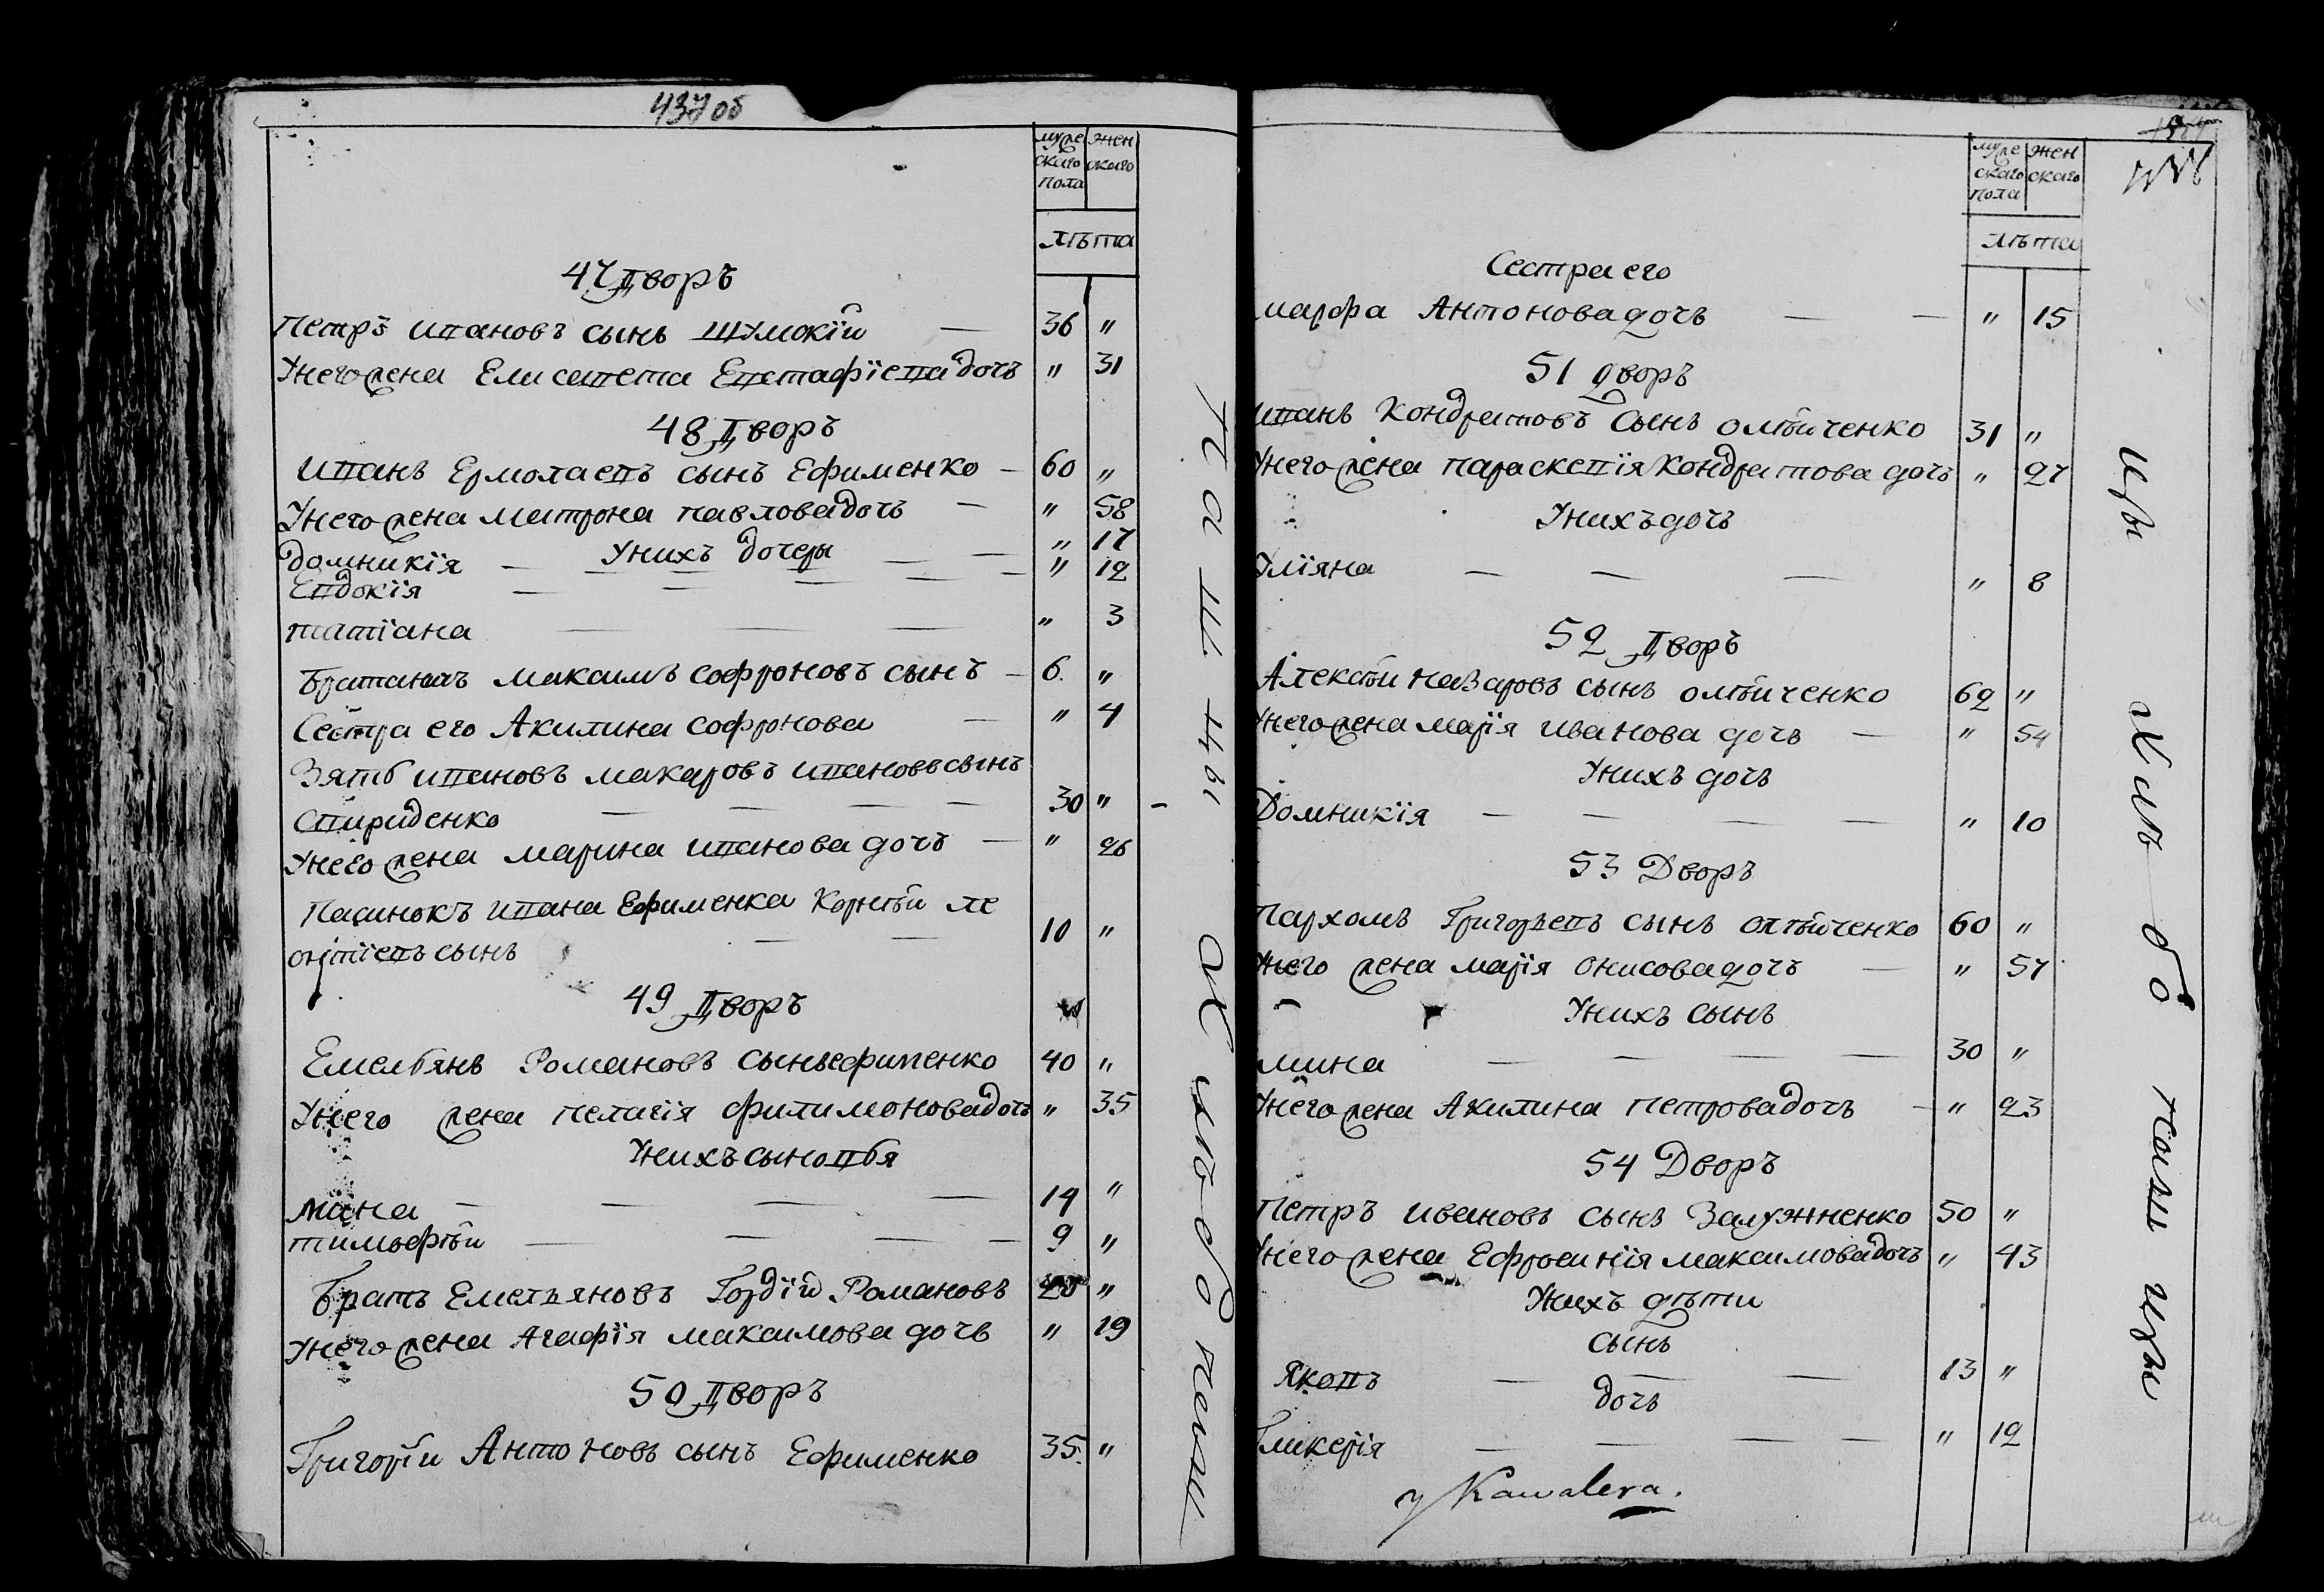 437 об
муже женского
скаго
пола
лѣта
47 Дворъ
Петръ ивановъ сынъ Шумскїй — 36 "
Унего жена Елисавета Евстафїева дочь " 31
48 Дворъ
иванъ Ермолаевъ сынъ Ефименко — 60 "
Унего жена матрона павлова дочь — " 58
Унихъ дочеры
домникїя — " 17
Евдокїя — " 12
татїана — " 3
Братаничъ максимъ софроновъ сынъ — 6. "
Сестра его Акилина софронова — " 4
Зять ивановъ макаровъ ивановъ сынъ
Спириденко — 30 "
Унего жена марина иванова дочь — " 26
Пасинокъ ивана Ефименка Корнѣй ле
онтїевъ сынъ — 10 "
49 Дворъ
Емельянъ Романовъ сынъ ефименко 40 "
Унего жена пелагїя филимонова дочь " 35
Унихъ сыновья
мина — 14 "
тимофѣй — 9 "
Братъ Емельяновъ Гордїй Романовъ "
Унего жена Агафїя максимова дочь " 19
50 Дворъ
Григорїй Антоновъ сынъ Ефименко 35. "
муже жен
скаго скаго
пола
лѣта
Сестра его
марфа Антонова дочь — " 15
51 дворъ
иванъ Кондратовъ сынъ олѣйченко 31 "
Унего жена параскевїя Кондратова дочь " 27
Унихъ дочь
Улїяна — " 8
52 Дворъ
Алексѣй назаровъ сынъ олѣйченко 62 "
Унего жена марїя иванова дочь — " 54
Унихъ дочь
Домникїя — " 10
53 Дворъ
Пархомъ Григорьевъ сынъ олѣйченко 60 "
Унего жена марїя онисова дочь — " 57
Унихъ сынъ
мина — 30 "
Унего жена Акилина петрова дочь — " 23
54 Дворъ
Петръ ивановъ сынъ Залужненко 50 "
Унего жена Ефросинїя максимова дочь " 43
Унихъ дѣти
сынъ
Яковъ — 13 "
дочь
Гликерїя — " 12
y Kawalera.